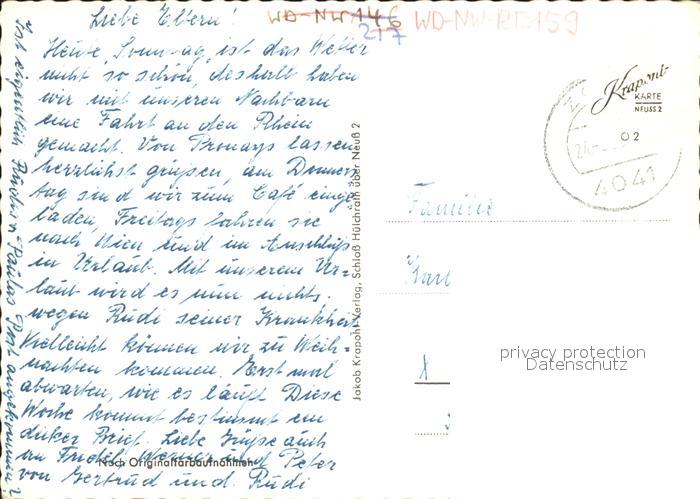 Liebe Eltern!
Heute, Sonntag, ist das Wetter
nicht so schön, deshalb haben
wir mit unseren Nachbarn
eine Fahrt an den Rhein
gemacht. Von Pronays lassen
herzlichst grüßen, am Donners
tag sind wir zum Café einge
laden, Freitags fahren sie
nach Wien und im Anschluß
in Urlaub. Mit unserem Ur-
laub wird es nun nichts.
wegen Rudi seiner Krankheit
Vielleicht können wir zu Weih-
nachten kommen. Erst mal
abwarten, wie es läuft Diese
Woche kommt bestimmt ein
dicker Brief. Liebe Grüße auch
an Friedel Werner und Peter
von Gertrud und Rudi
Ist eigentlich Paulas Post angekommen?
Nach Originalfarbaufnahmen
Jakob Krapohl-Verlag, Schloß Hülchrath über Neuß 2
WD-NW 146
217
WD-NW-RB159
Krapohl-
KARTE
NEUSS 2
02
4041
Familie
Karl
privacy protection
Datenschutz